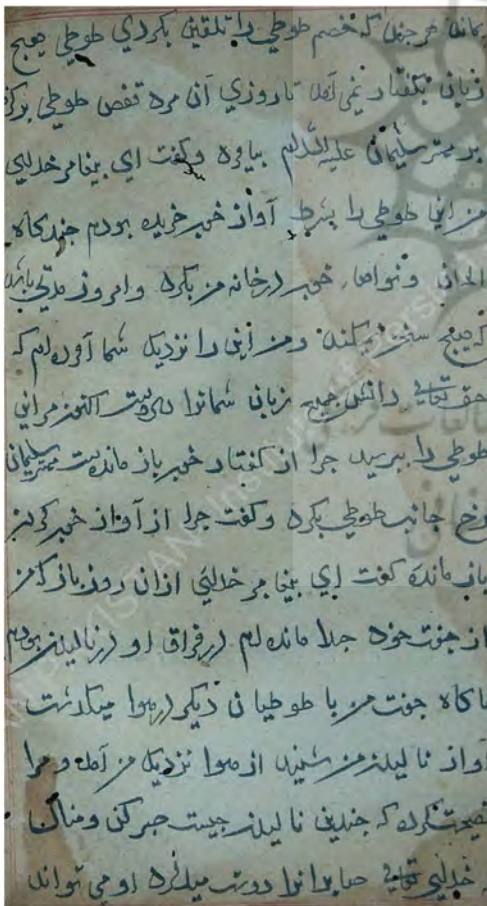 بماند هر چند که خصم طوطی را تلقین بکردی طوطی هیچ
زبان بگفتار نمی آمد تا روزی آن مرد قفص طوطی برگرفت
بر مهتر سلیمان علیه السّلام بیاورد و گفت ای پیغامبر خدایی
من این طوطی را بشرط آواز خوب خریده بودم چندگاه
الحان و نواها خوب در خانه من بکرد و امروز مدتی باشد
که هیچ سخن نمیکند و من این را نزدیک شما آورده ام که
حق تعالی دانش جمیع زبان شما را داده است اکنون مر این
طوطی را بپرسید چرا از گفتار خوب باز مانده است مهتر سلیمان
رخ جانب طوطی بکرد و گفت چرا از آواز خوب کردن
باز مانده گفت ای پیغامبر خدایی ازان روز باز که من
از جفت خود جدا مانده ام در فراق او در نالیدن بودم
ناگاه جفت من با طوطیان دیگر در هوا میگذشت
آواز نالیدن من شنید از هوا نزدیک من آمد و مرا
نصیحت کرد که چندین نالیدن چیست صبر کن
خدایی تعالی صابرانرا دوست میدارد او می تواند